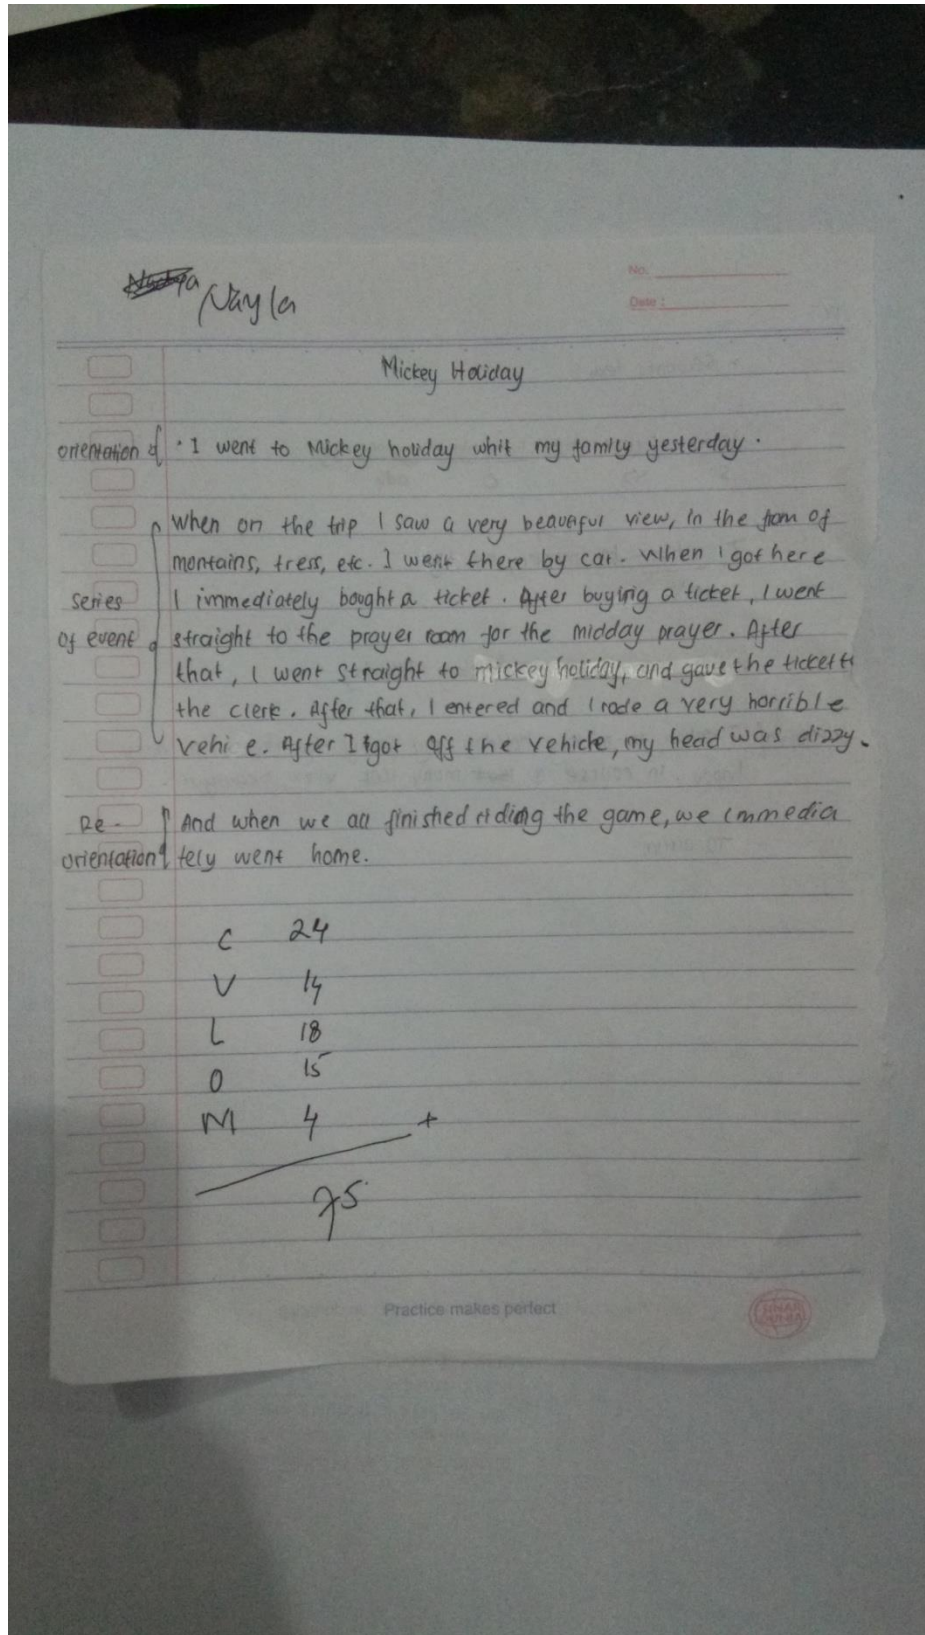 Nayla
No.
Date :
Mickey Holiday
orientation · I went to Mickey holiday whit my family yesterday .
When on the trip I saw a very beautiful view, in the from of
montains, tress, etc. I went there by car. When I got here
Series I immediately bought a ticket. After buying a ticket, I went
Of event straight to the prayer room for the midday prayer. After
that, I went straight to mickey holiday, and gave the ticket
the clerk. After that, I entered and I rode a very horrible
vehi e. After I got off the vehicle, my head was dizzy.
Re- And when we all finished riding the game, we immedia
orientation tely went home.
C 24
V 14
L 18
O 15
M 4 +
75
Practice makes perfect